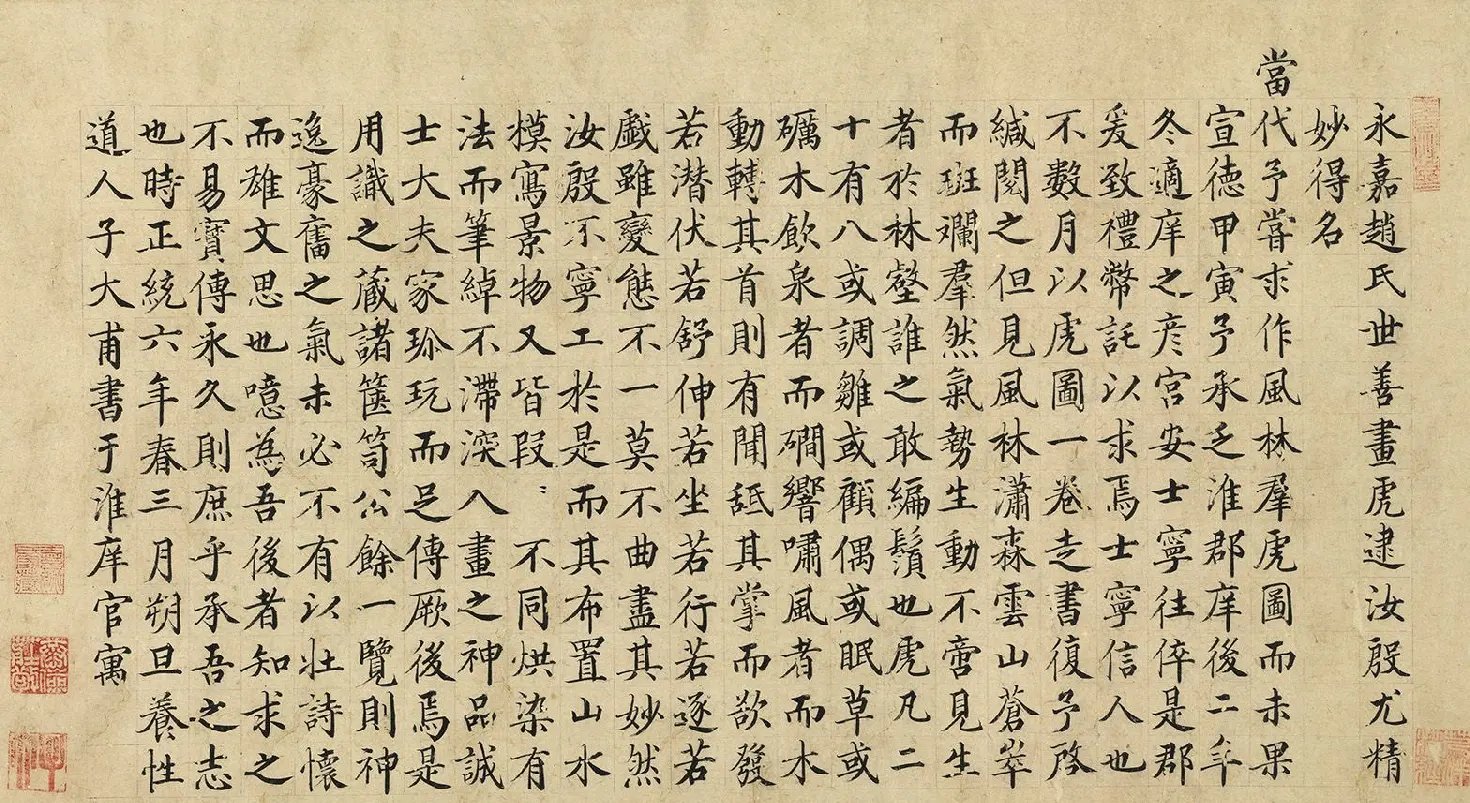 永嘉趙氏世善畫虎逮汝殷尤精
妙得名
當代予嘗求作風林羣虎圖而未果
宣徳甲寅予承乏淮郡庠後二年
冬適庠之彦宮安士寧往倅是郡
爰致禮幣託以求焉士寧信人也
不數月以虎圖一卷走書復予啓
緘閱之但見風林瀟森雲山蒼崒
而斑斕羣然氣勢生動不啻見生
者於林壑誰之敢編鬚也虎凡二
十有八或調雛或顧偶或眠草或
礪木飲泉者而磵響嘯風者而木
動轉其首則有聞舐其掌而欲發
若潜伏若舒伸若坐若行若逐若
戯雖變態不一莫不曲盡其妙然
汝殷不寧工於是而其布置山水
模寫景物又皆叚〻不同烘染有
法而筆綽不滯深入畫之神品誠
士大夫家珎玩而足傳厥後焉是
用識之蔵諸篋笥公餘一覽則神
逸豪奮之氣未必不有以壯詩懐
而雄文思也噫為吾後者知求之
不易寳傳永久則庶乎承吾之志
也時正統六年春三月朔旦養性
道人子大甫書于淮庠官寓